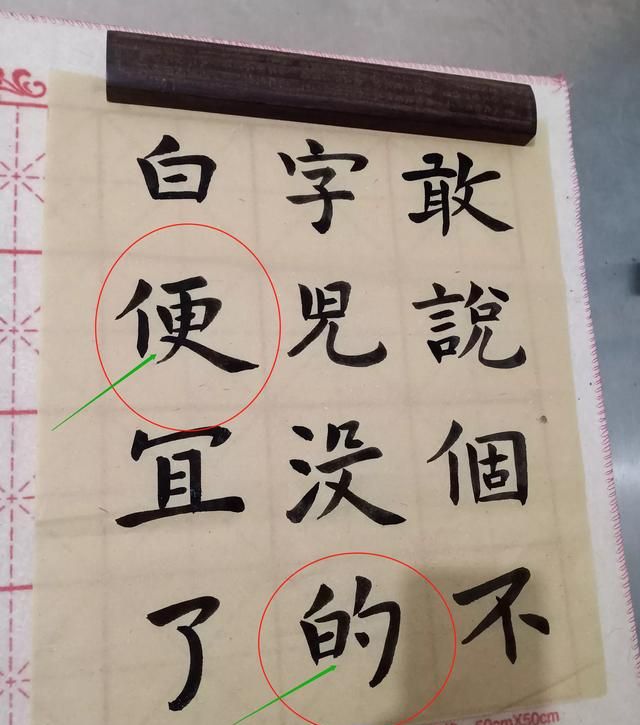 敢說個不
字兒没的
白便冝了
50cmX50cm